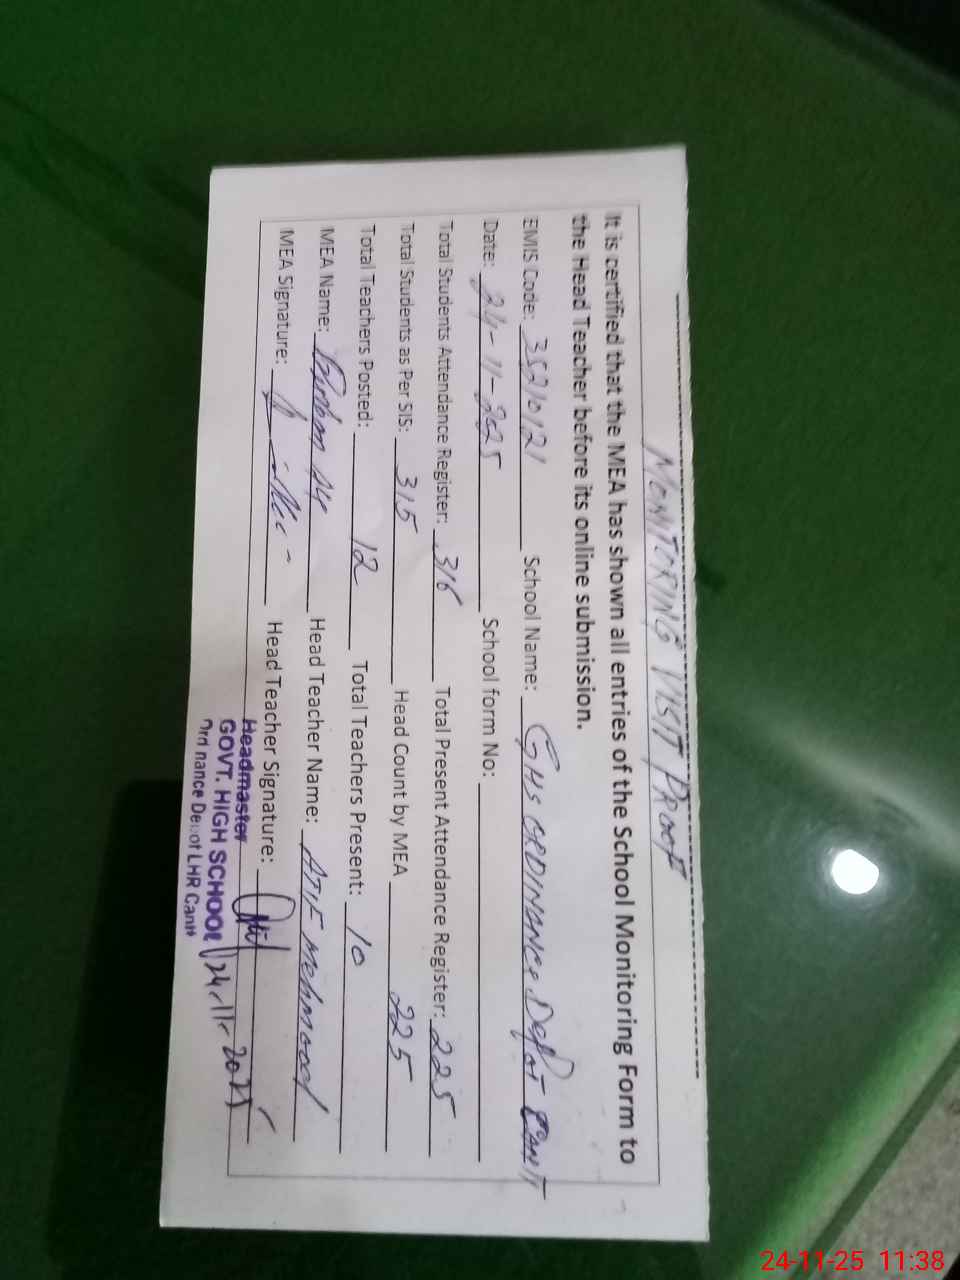 MONITORING VISIT PROOF
It is certified that the MEA has shown all entries of the School Monitoring Form to
the Head Teacher before its online submission.
EMIS Code: 35210121 School Name: GHS ORDINANCE Depot CANTT
Date: 24-11-2025 School form No:
Total Students Attendance Register: 316 Total Present Attendance Register: 225
Total Students as Per SIS: 315 Head Count by MEA 225
Total Teachers Posted: 12 Total Teachers Present: 10
MEA Name: Head Teacher Name: ATIF mehmood
MEA Signature: Head Teacher Signature:
Headmaster
GOVT. HIGH SCHOOL 24-11-2025
Ordnance Depot LHR Cantt
24-11-25 11:38